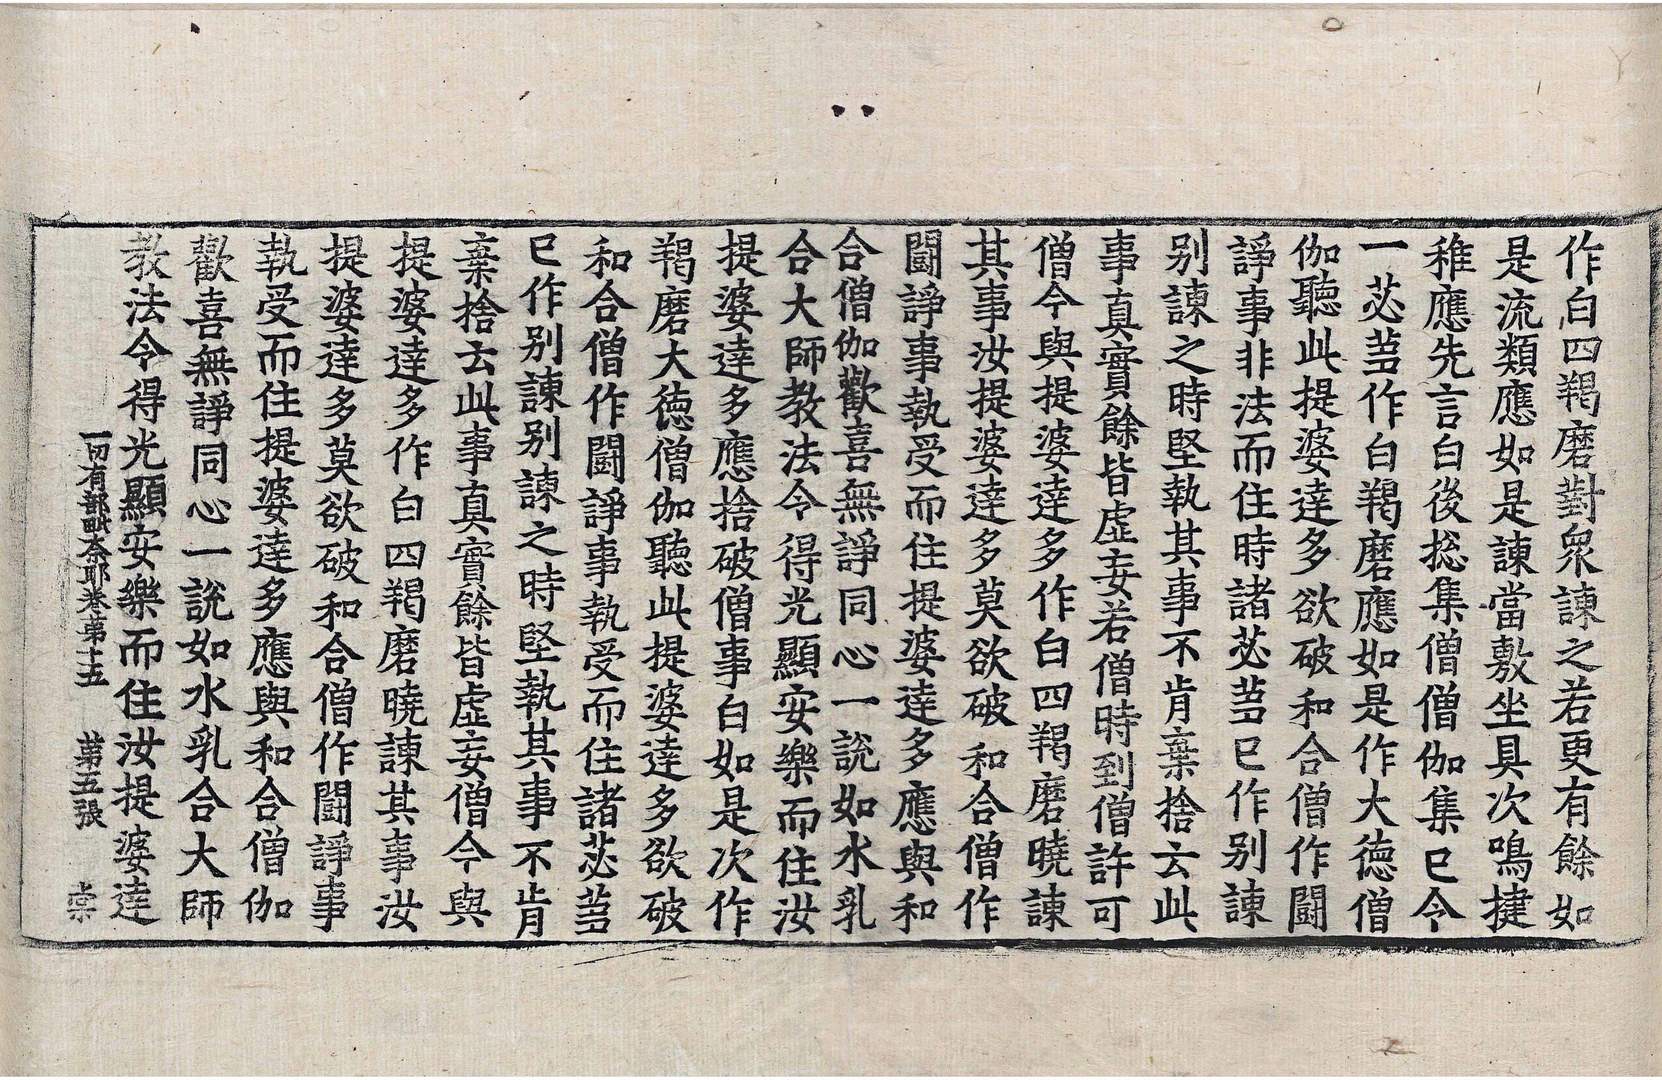 作白四羯磨對衆諫之若更有餘如
是流類應如是諫當敷坐具次鳴揵
稚應先言白後捴集僧僧伽集已令
一苾芻作白羯磨應如是作大德僧
伽聽此提婆達多欲破和合僧作鬪
諍事非法而住時諸苾芻已作别諫
别諫之時堅執其事不肯棄捨云此
事真實餘皆虚妄若僧時到僧許可
僧今與提婆達多作白四羯磨曉諫
其事汝提婆達多莫欲破和合僧作
鬪諍事執受而住提婆達多應與和
合僧伽歡喜無諍同心一說如水乳
合大師教法令得光顯安樂而住汝
提婆達多應捨破僧事白如是次作
羯磨大德僧伽聽此提婆達多欲破
和合僧作鬪諍事執受而住諸苾芻
已作别諫别諫之時堅執其事不肯
棄捨云此事真實餘皆虚妄僧今與
提婆達多作白四羯磨曉諫其事汝
提婆達多莫欲破和合僧作鬪諍事
執受而住提婆達多應與和合僧伽
歡喜無諍同心一說如水乳合大師
教法令得光顯安樂而住汝提婆達
一切有部毗奈耶卷第十五 第五張 棠